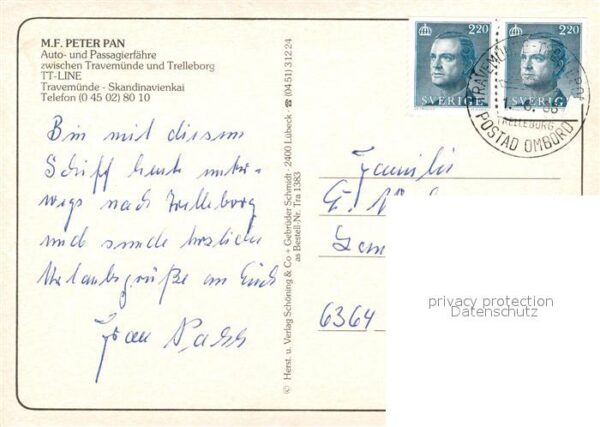 M.F. PETER PAN
Auto- und Passagierfähre
zwischen Travemünde und Trelleborg
TT-LINE
Travemünde - Skandinavienkai
Telefon (0 45 02) 80 10
Bin mit diesem
Schiff heute unter-
wegs nach Trelleborg
und sende herzliche
Urlaubsgrüße an Euch
Frau
© Herst. u. Verlag Schöning & Co + Gebrüder Schmidt · 2400 Lübeck · ☎ (04 51) 3 12 24
as Bestell-Nr. Tra 1383
220
SVERIGE
220
SVERIGE
TRELLEBORG
POSTAD OMBORD
Familie
6364
privacy protection
Datenschutz